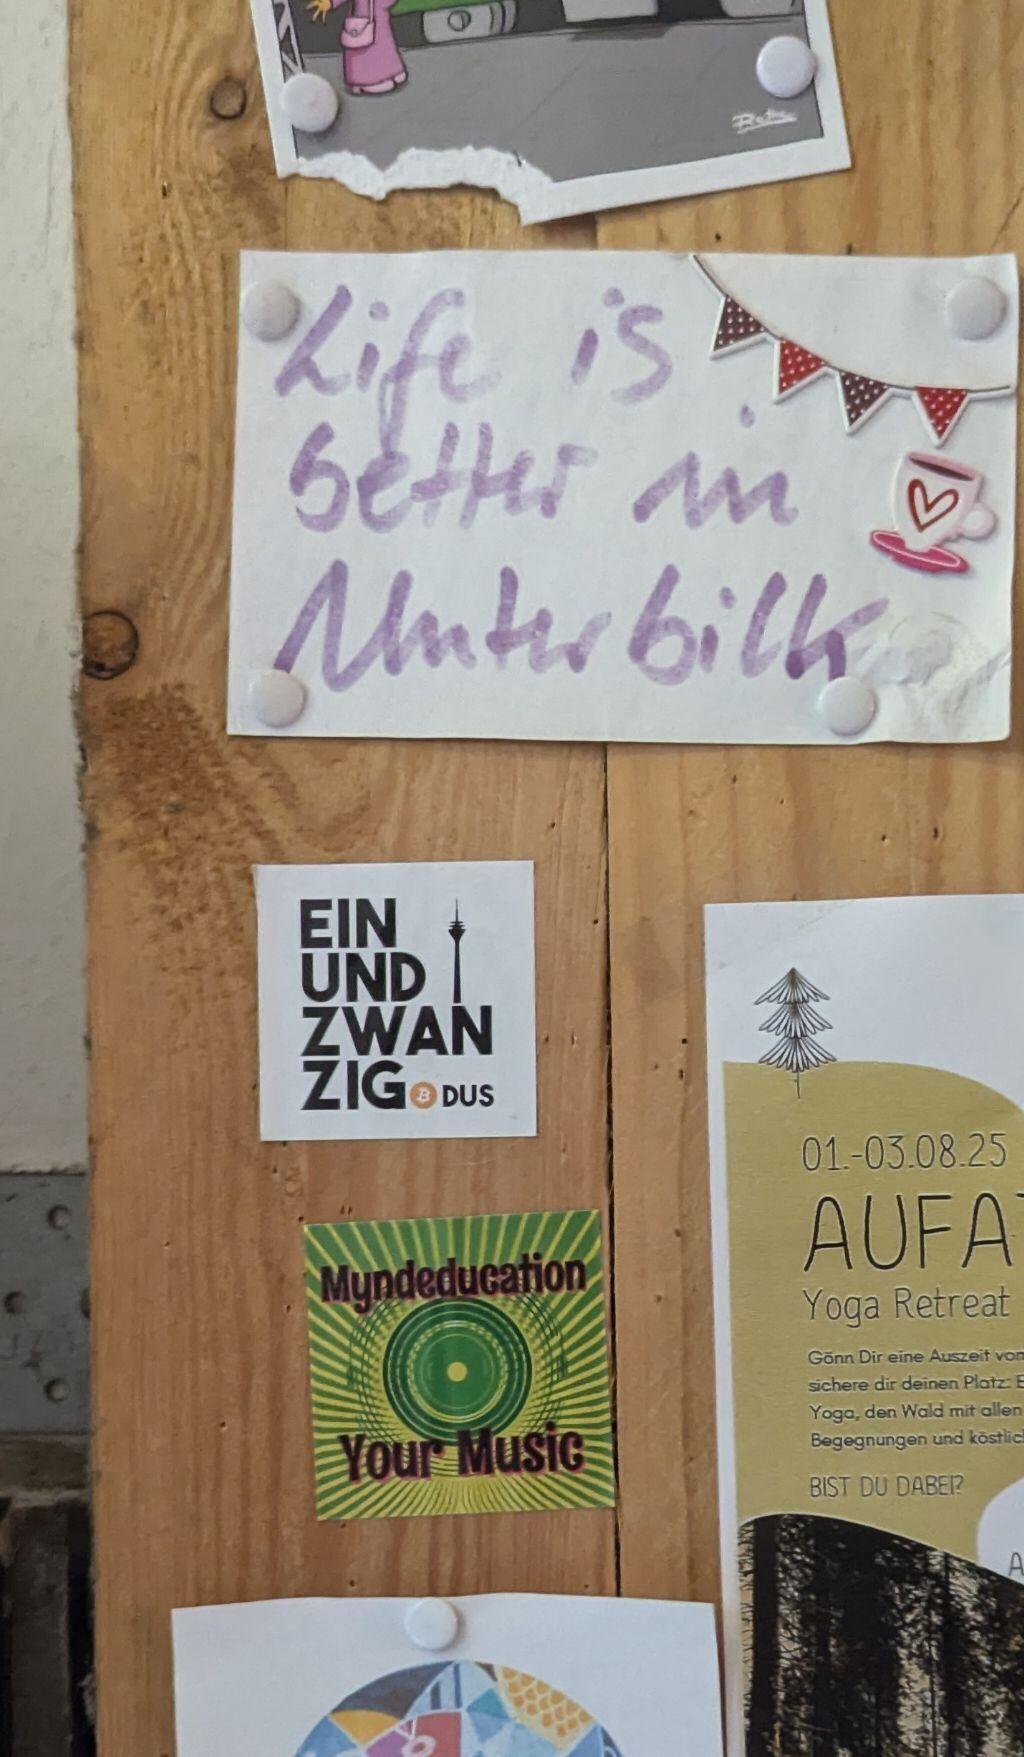 Life is
better in
Unterbilk
EIN
UND
ZWAN
ZIG DUS
Myndeducation
Your Music
01.-03.08.25
AUFA
Yoga Retreat
Gönn Dir eine Auszeit vom
sichere dir deinen Platz: E
Yoga, den Wald mit allen
Begegnungen und köstlic
BIST DU DABEI?
A